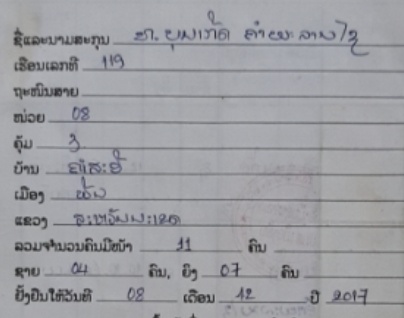 ຊື່ແລະນາມສະກຸນ ທ. ບຸນເກີດ
ເຮືອນເລກທີ 119
ຖະໜົນສາຍ
ໜ່ວຍ 08
ຄຸ້ມ 3
ບ້ານ
ເມືອງ
ແຂວງ ສະຫວັນນະເຂດ
ລວມຈຳນວນຄົນມີໜ້າ 11 ຄົນ
ຊາຍ 04 ຄົນ, ຍິງ 07 ຄົນ
ຢັ້ງຢືນໃຫ້ວັນທີ 08 ເດືອນ 12 ປີ 2017